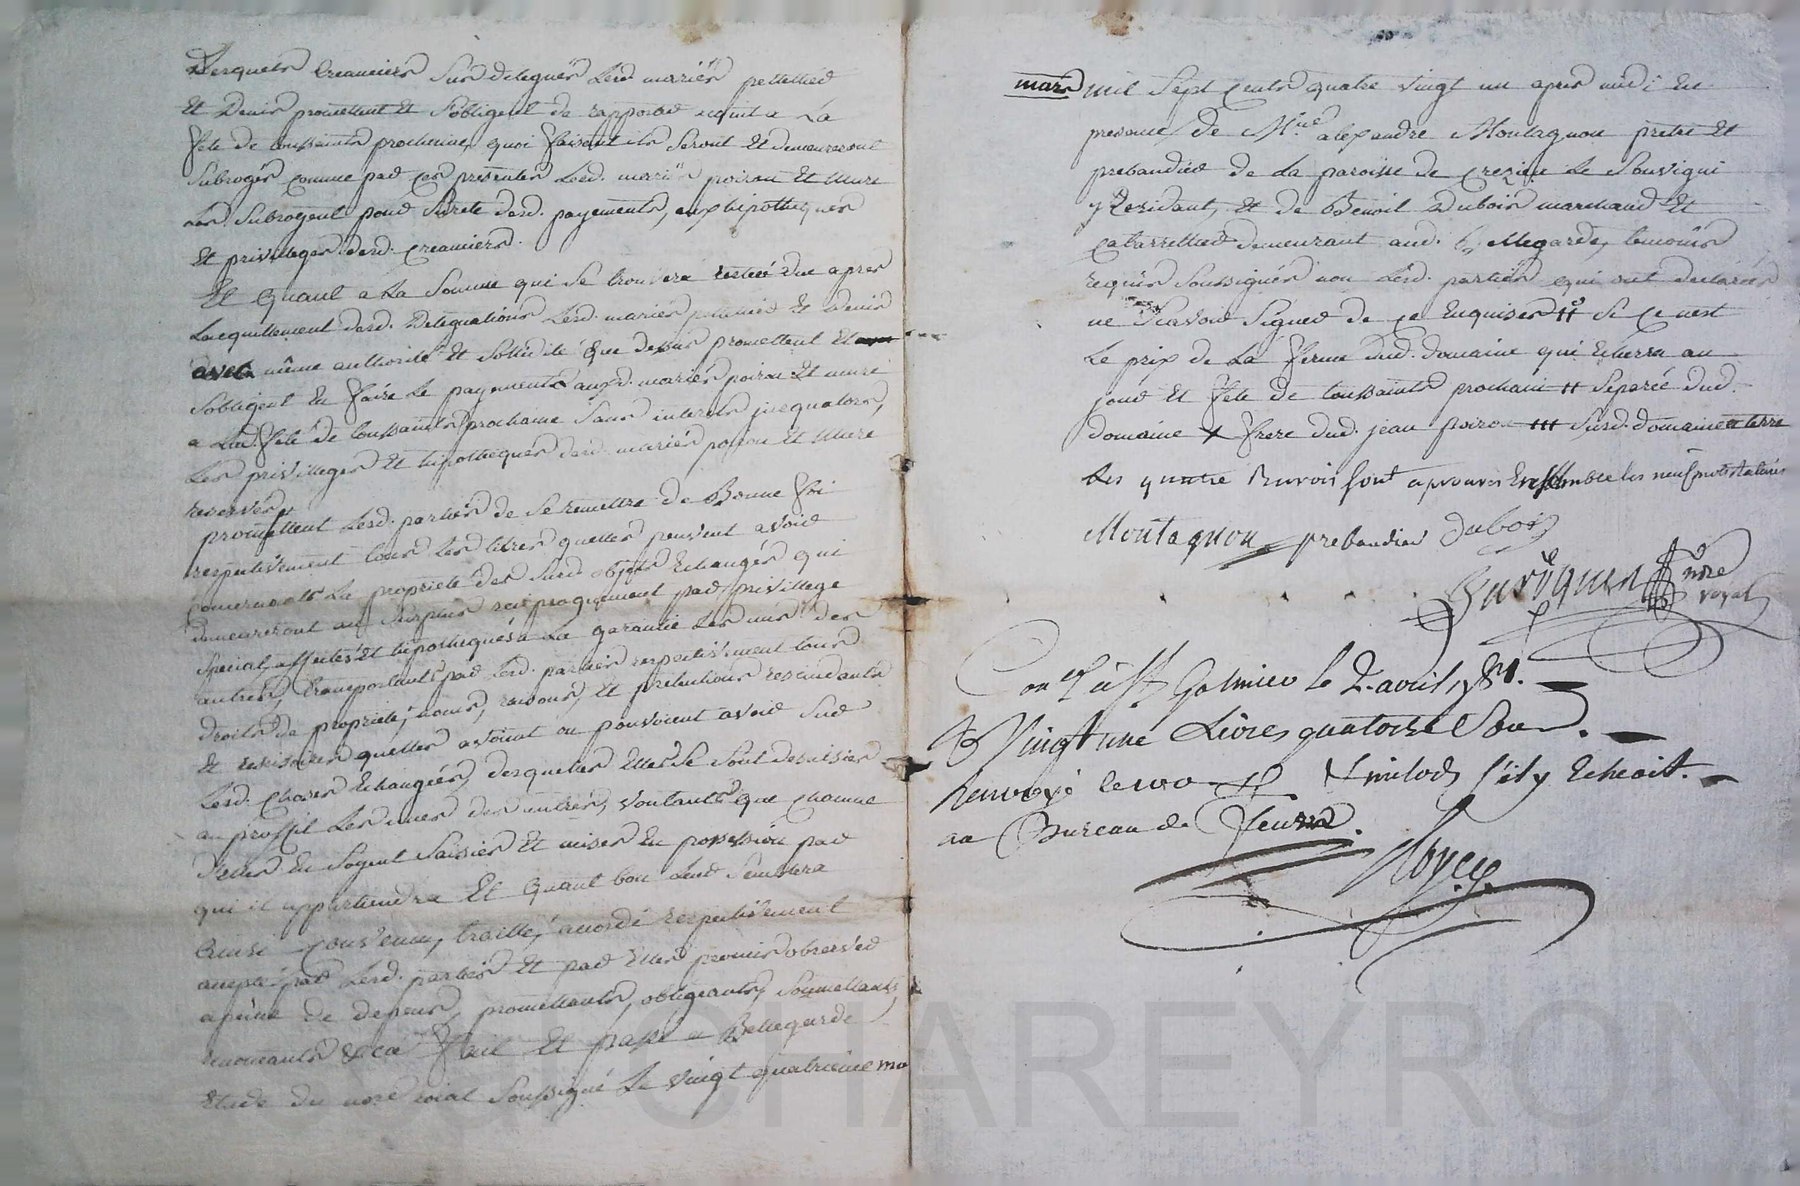 Desquels Creanciers Sus delegués Lesd. mariés pelletied
Et Denis promettent Et Sobligent de rapporter a La
fete de toussaints prochaine, quoi faisant ils Seront Et demeureront
Subrogés comme par ces presentes Lesd. mariés poiron Et mure
Les Subrogent pour Sureté desd. payements, aux hipotheques
Et privilleges desd. creanciers.
Et Quant a La Somme qui Se trouvera restée due apres
Lacquittement desd. Delegations Lesd. mariés Et Denis
avec même authorité Et Sollidité que dessus promettent Et
Sobligent En faire Le payements auxd. mariés poiron Et mure
a Lad. fete de toussaints prochaine Sans interets jusqualors,
Les privilleges Et hipotheques desd. mariés poiron Et mure
reservés
promettent Lesd. parties de Se remettre de Bonne foi
respectivement tous Les titres quelles peuvent avoir
concernants La propriété des Susd. objets Echangés qui
demeureront au Surplus reciproquement par privillege
Special, affectés Et hipothequés a La garantie Les uns des
autres, transportants par Lesd. parties respectivement tous
droits de propriété, noms, raisons, Et pretentions rescindants
Et rescisoires quelles avoient ou pouvoient avoir Sur
Lesd. choses Echangées, desquelles Elles Se Sont desaisies
au proffit Les unes des autres, voulants que chacune
d'elles En Soyent Saisies Et mises En possession par
qui il appartiendra Et Quant bon Leur Semblera
Ainsi convenu, traitté, accordé respectivement
accepté par Lesd. parties Et par Elles promis observer
a peine de depens, promettants, obligeants, Soumettants,
renonceants &ca fait Et passé a Bellegarde
Etude du nore roial Soussigné Le vingt quatrieme
mars mil Sept Cents quatre vingt un apres midi En
presence de Mre alexandre Montagnon pretre Et
prebandier de La paroisse de Le Souvigni
y Residant, Et de Benoit Dubois marchand Et
cabarettier demeurant aud. Bellegarde, temoins
requis Soussignés non Lesd. parties qui ont declarés
ne Scavoir Signer de ce Enquises # Si ce nest
Le prix de La ferme dud. domaine qui Echerra au
jour Et fete de toussaints prochain # Separée dud.
domaine x frere dud. jean poiron ### Susd. domaine
Les quatre Renvois sont aprouvés Ensemble les neuf mots
Montagnon prebandier Dubois
nore
royal
Conlé à St Galmier le 2. avril 1781.
R Vingt une Livres quatorze Sous.
Renvoyé le 100e Et milods s'il y Echeoit.
au Bureau de feurs.